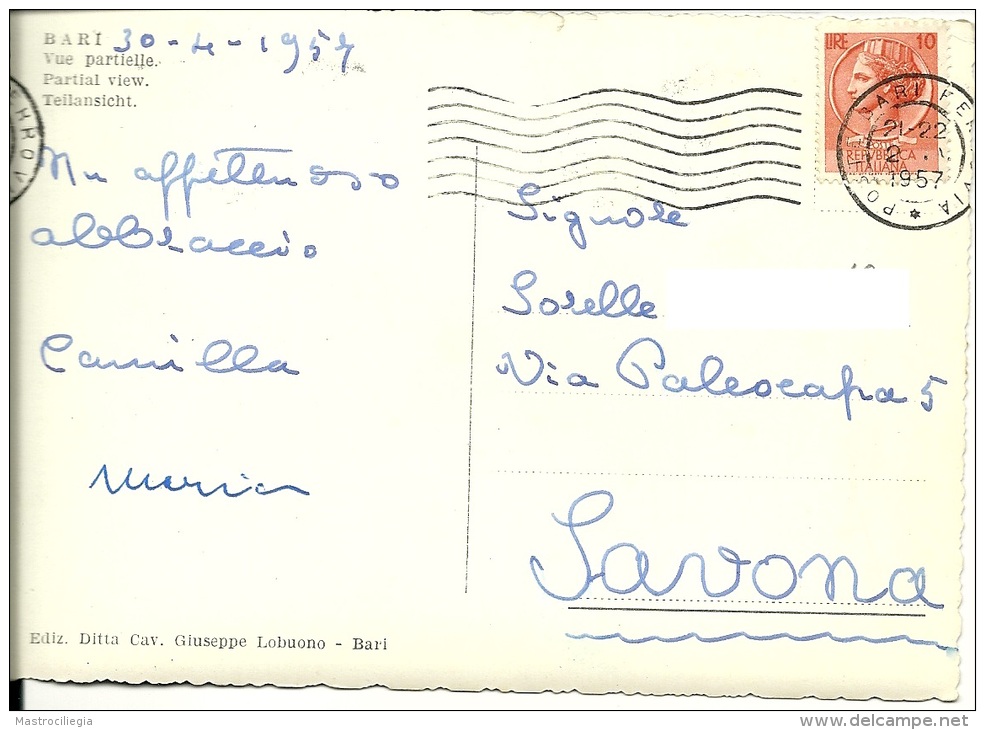 BARI 30-4-1957
Vue partielle.
Partial view.
Teilansicht.
Un affettuoso
abbraccio
Camilla
Maria
Ediz. Ditta Cav. Giuseppe Lobuono - Bari
LIRE 10
REPVBBLICA
ITALIANA
BARI FERROVIA
21-22
1957
Signore
Sorelle
Via Paleocapa 5
Savona
Mastrociliegia
www.delcampe.net